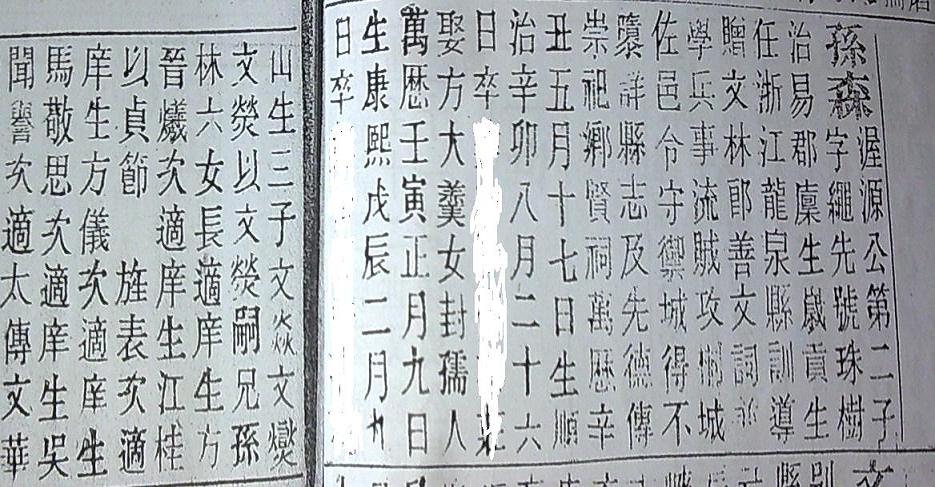 孫森
渥源公第二子
字繩先號珠樹
治易郡廩生歲貢生
任浙江龍泉縣訓導
贈文林郎善文詞
學兵事流賊攻桐城
佐邑令守禦城得不
隳詳縣志及先德傳
崇祀鄉賢祠萬歷辛
丑五月十七日生順
治辛卯八月二十六
日卒
娶方大羹女封孺人
萬歷壬寅正月九日
生康熙戊辰二月九
日卒
山生三子文焱文爕
文熒以文熒嗣兄孫
林六女長適庠生方
晉爔次適庠生江桂
以貞節 旌表次適
庠生方儀次適庠生
馬敬思次適庠生吳
聞譽次適太傅文華